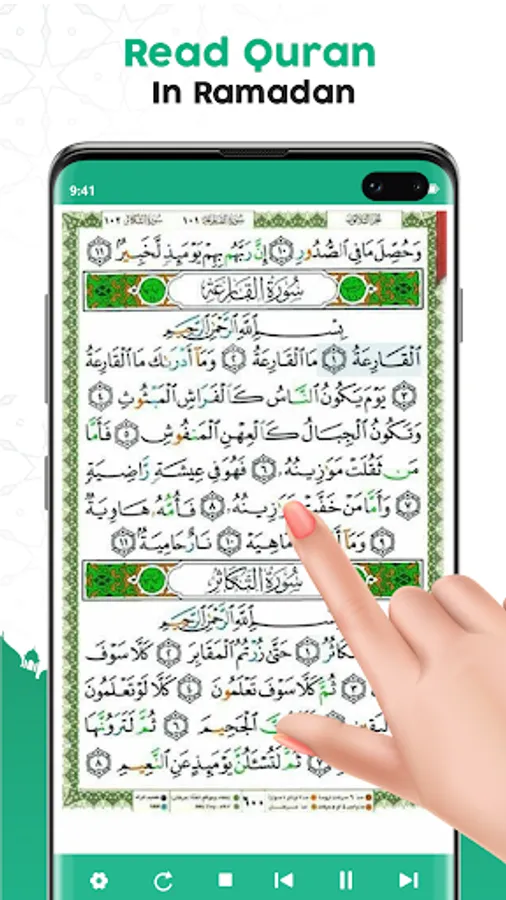 Read Quran
In Ramadan
9:41
وَحُصِّلَ مَا فِي الصُّدُورِ ١٠ إِنَّ رَبَّهُم بِهِمْ يَوْمَئِذٍ لَّخَبِيرٌ ١١
سُورَةُ القَارِعَةِ
بِسْمِ اللَّهِ الرَّحْمَٰنِ الرَّحِيمِ
الْقَارِعَةُ ١ مَا الْقَارِعَةُ ٢ وَمَا أَدْرَىٰكَ مَا الْقَارِعَةُ
٣ يَوْمَ يَكُونُ النَّاسُ كَالْفَرَاشِ الْمَبْثُوثِ ٤
وَتَكُونُ الْجِبَالُ كَالْعِهْنِ الْمَنفُوشِ ٥ فَأَمَّا
مَن ثَقُلَتْ مَوَٰزِينُهُۥ ٦ فَهُوَ فِي عِيشَةٍ رَّاضِيَةٍ
٧ وَأَمَّا مَنْ خَفَّتْ مَوَٰزِينُهُۥ ٨ فَأُمُّهُۥ هَاوِيَةٌ
٩ وَمَا مَاهِيَهْ ١٠ نَارٌ حَامِيَةٌ ١١
سُورَةُ التَّكَاثُرِ
بِسْمِ اللَّهِ الرَّحْمَٰنِ الرَّحِيمِ
١ حَتَّىٰ زُرْتُمُ الْمَقَابِرَ ٢ كَلَّا سَوْفَ
٣ ثُمَّ كَلَّا سَوْفَ تَعْلَمُونَ ٤ كَلَّا لَوْ تَعْلَمُونَ
الْجَحِيمَ ٦ ثُمَّ لَتَرَوُنَّهَا
٧ ثُمَّ لَتُسْـَٔلُنَّ يَوْمَئِذٍ عَنِ النَّعِيمِ ٨
٦٠٠